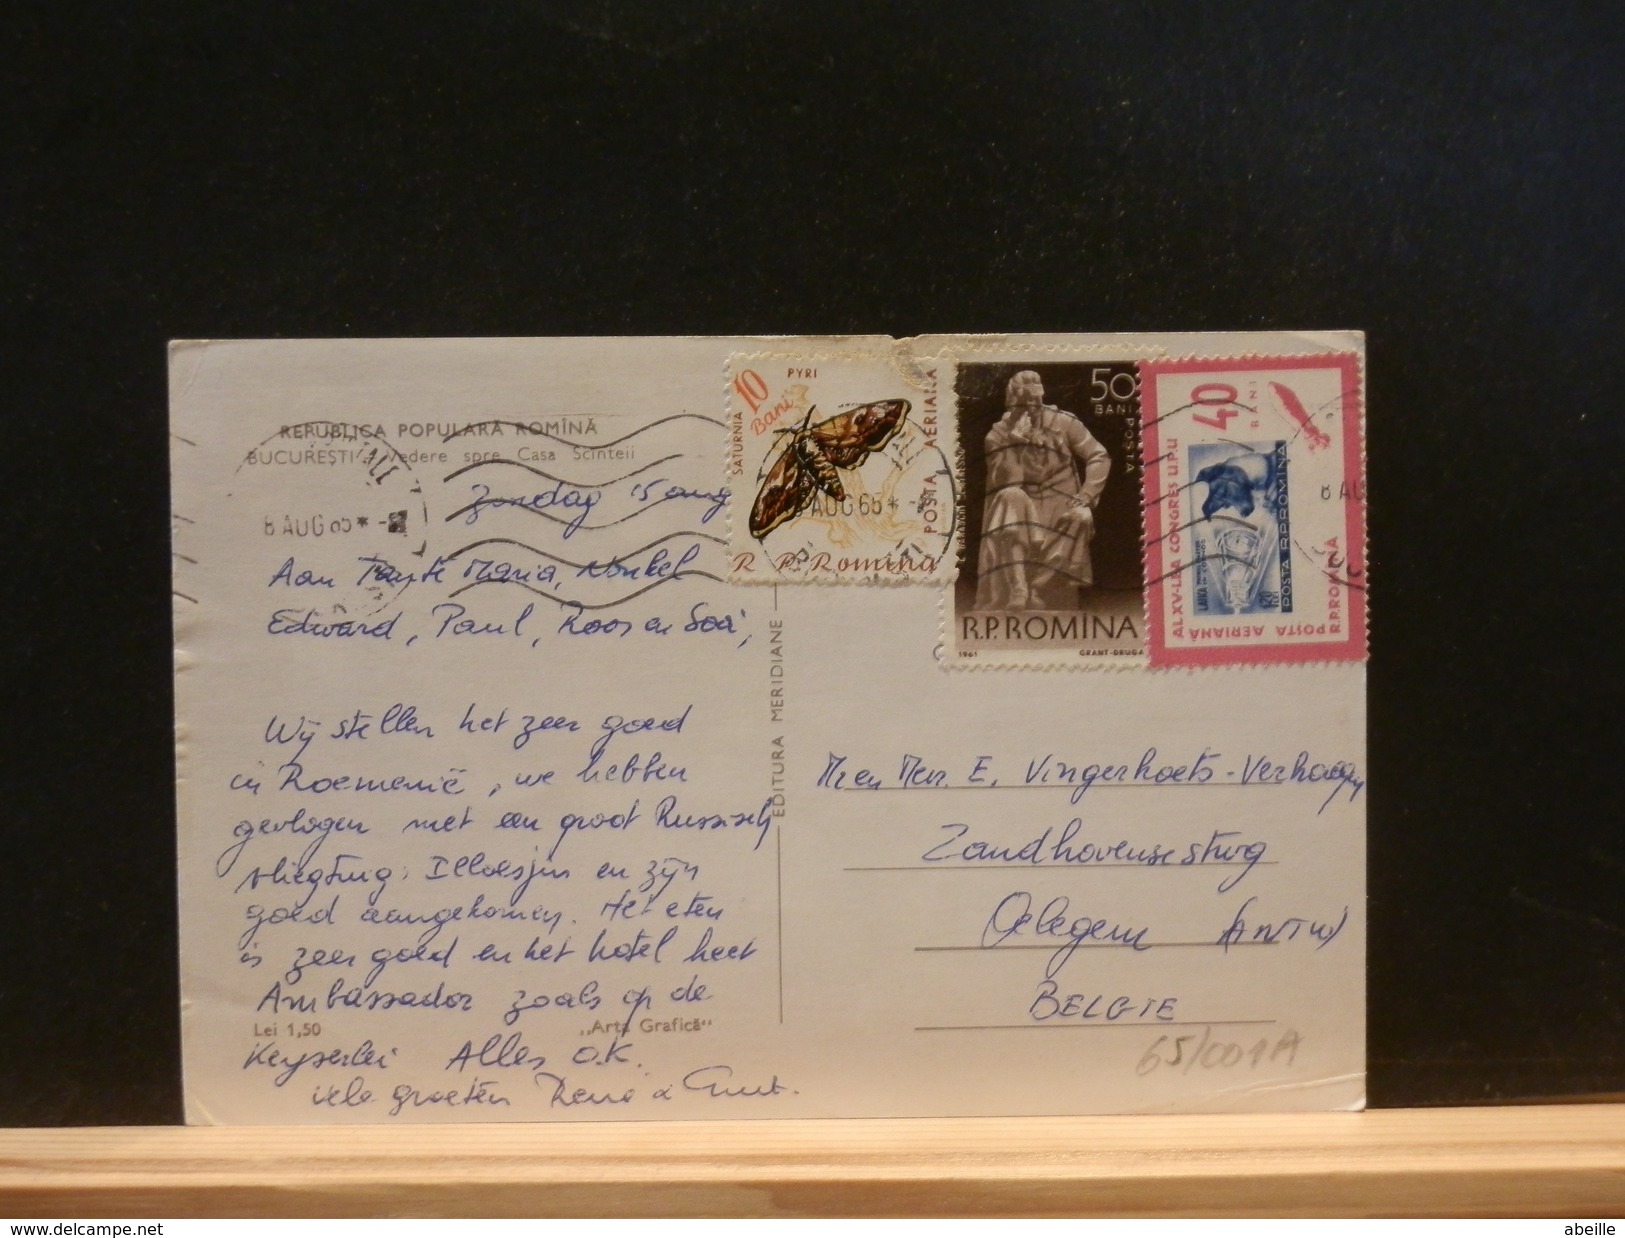 REPUBLICA POPULARĂ ROMÎNĂ
BUCUREȘTI - Vedere spre Casa Scînteii
8 AUG 65 * -8
Zondag 15 aug
Aan Tante Maria, Nonkel
Edward, Paul, Roos en
Wij stellen het zeer goed
in Roemenië, we hebben
gevlogen met een groot Russisch
vliegtuig. en zijn
goed aangekomen. Het eten
is zeer goed en het hotel heet
Ambassador zoals op de
Lei 1,50 „Arta Grafică"
Keyserlei Alles O.K.
vele groeten René &
EDITURA MERIDIANE
10 Bani
SATURNIA PYRI
POSTA AERIANA
R.P.Romina
AUG 65 *
50
BANI
POSTA
R.P.ROMÎNA
1961 GRANT-DRUGA
40
BANI
AL XV-LEA CONGRES U.P.U
POSTA AERIANĂ
R.P.ROMÎNA
LAIKA
POSTA R.P.ROMINA
8 AU
Mr en Mevr. E. Vingerhoets-Verhaegen
Zandhovensestwg
Oelegem (ANTW)
BELGIE
65/001A
abeille